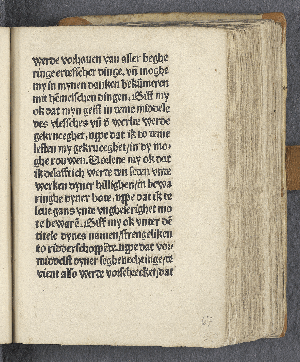 werde vorhauen van aller beghe
ringe ertlischer dinge. vñ moghe
my in mynen dancken bekũmeren
mit hẽmelschen dingen. Giff my
ok dat myn geist in deme middele
des vlesches vñ d̃ werlt werde
gekruceghet, uppe dat ik to deme
lesten my gekruceghet in dy mo-
ghe rouwen. Vorlene my ok dat
ik delafftich werde vn seten vnde
werken dyner hillighen in bewa
ringhe dyner bote, uppe dat ik te
leue gans vnde vngheseright mo
te bewarẽ. Giff my ok vnter dẽ
titele dynes namen strengeliken
to ridderschoppẽde. uppe dat vor-
middelst dyner seghebechtinge de
vient also werde vorschrecket dat